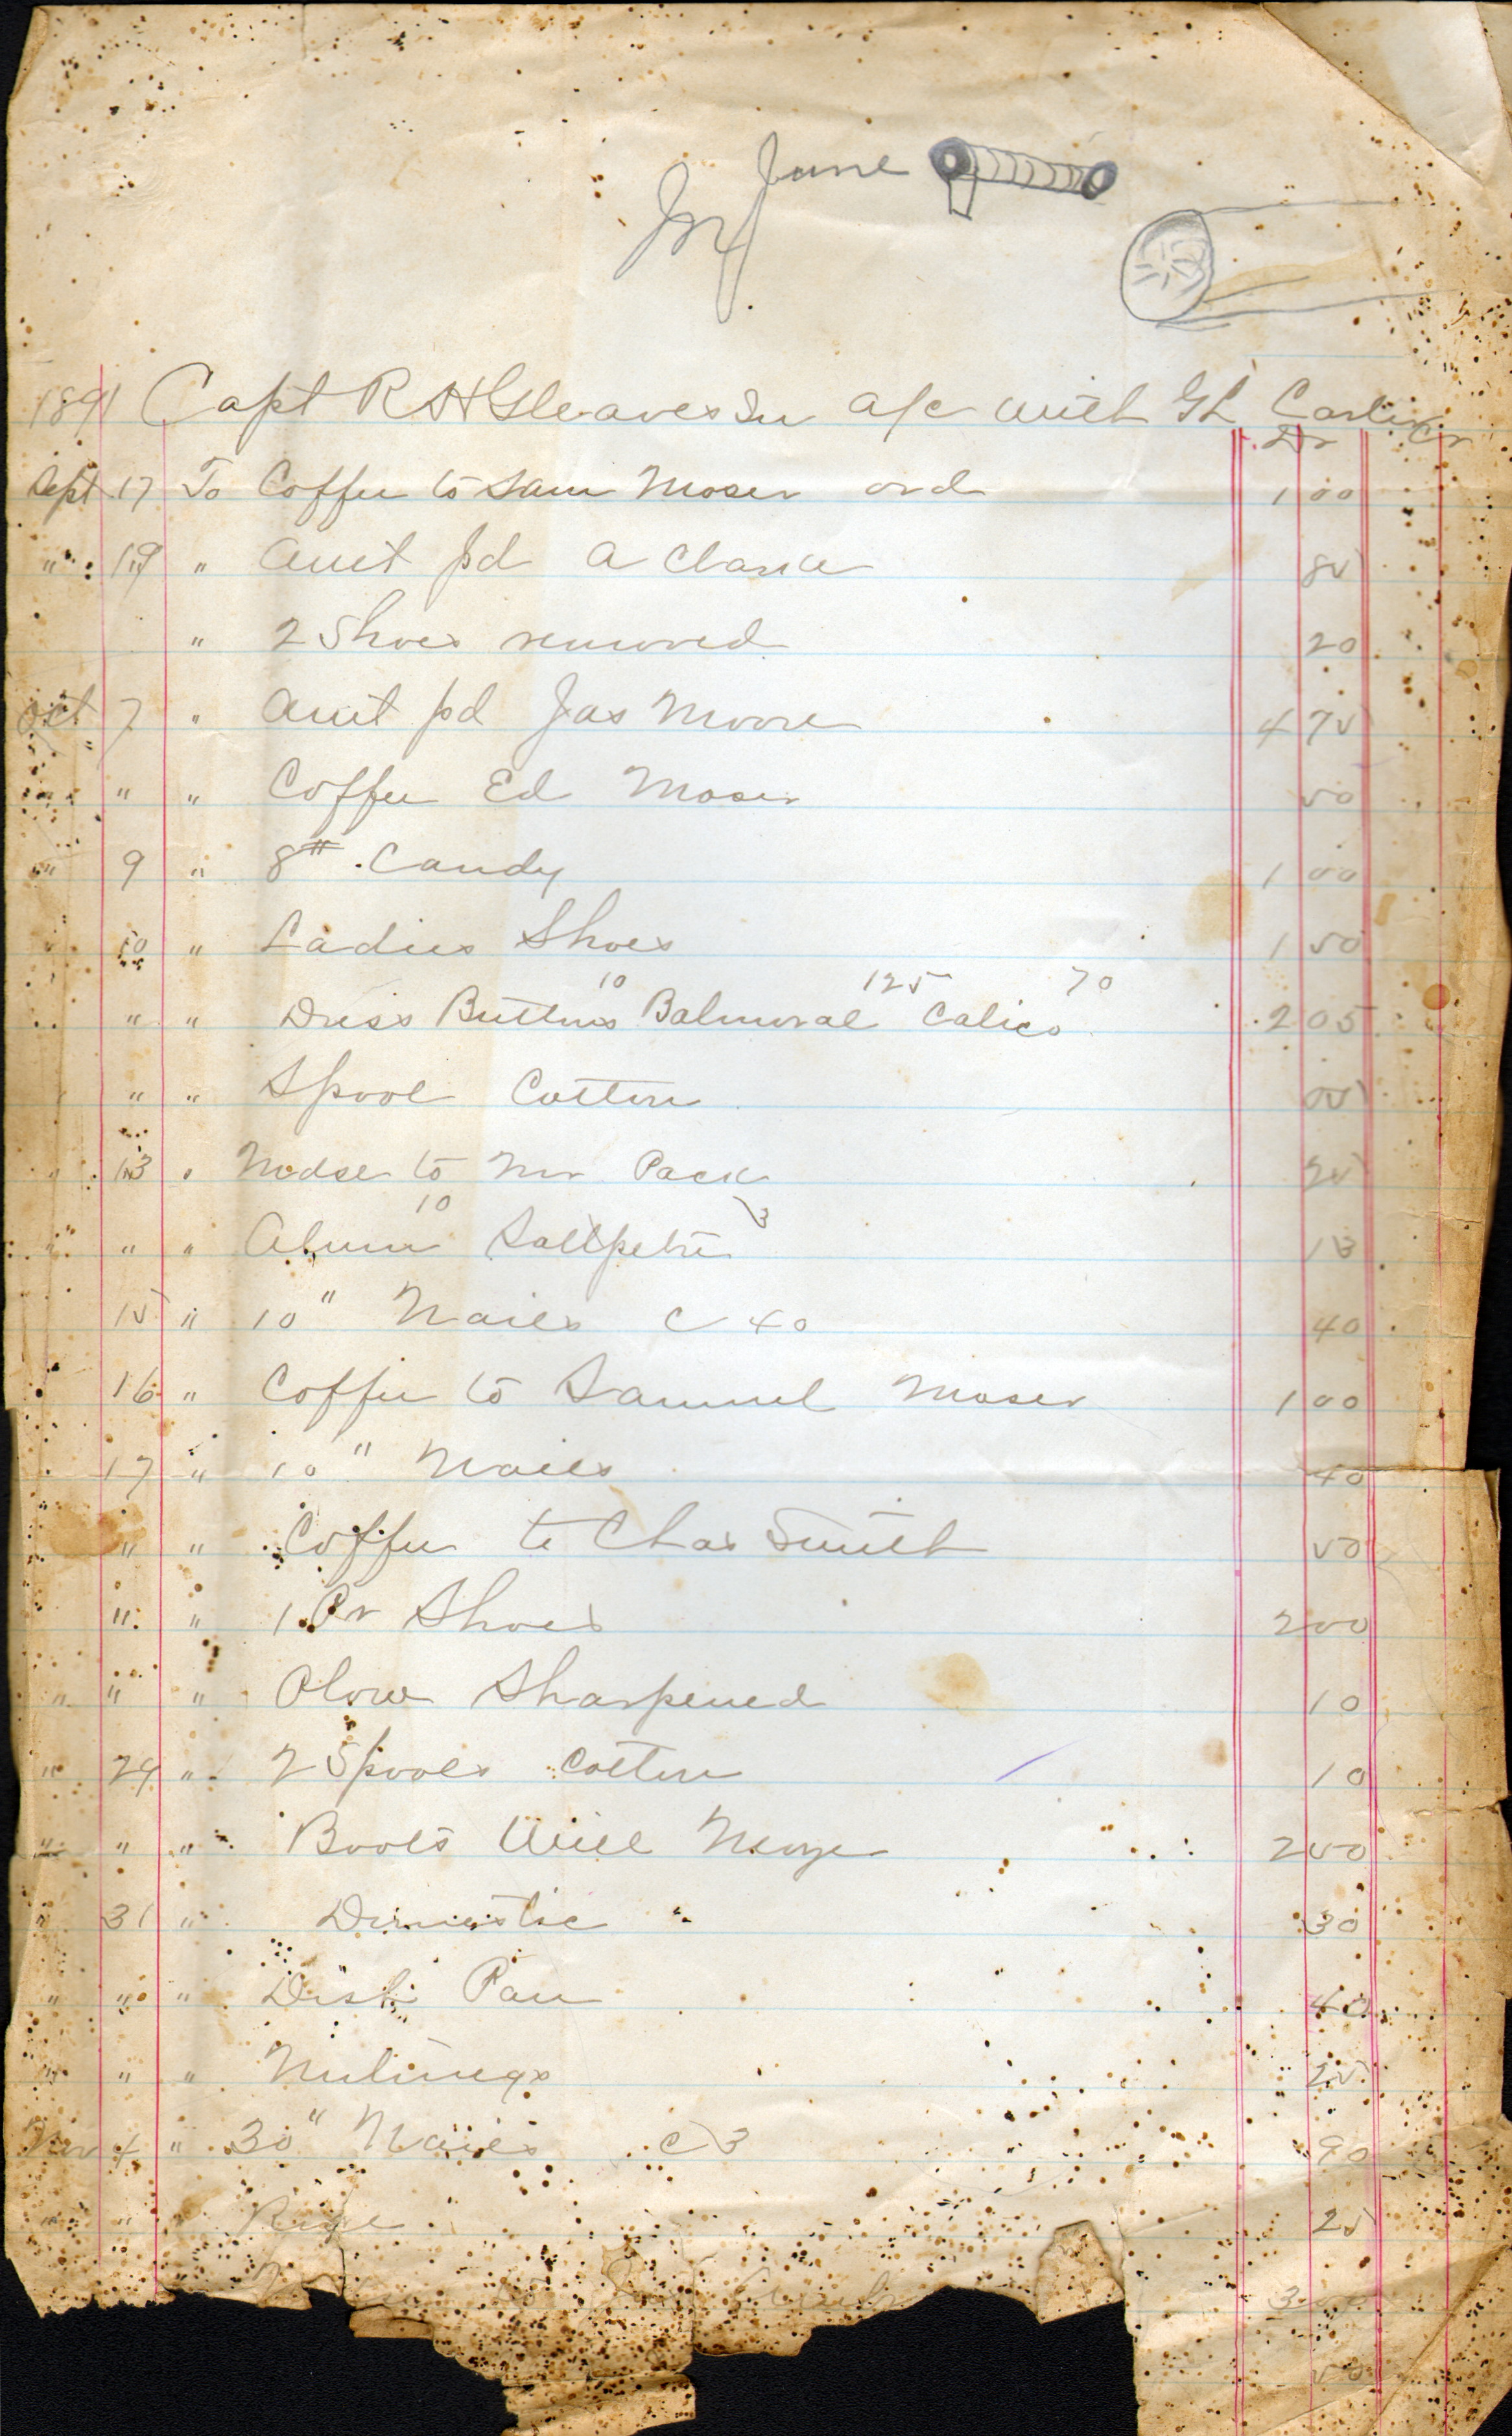 June
1891 Capt R H Gleaves In a/c with G L
Dr Cr
Sept 17 To Coffee to Sam Moser ord 1 00
" 19 " Amt pd A 85
" 2 Shoes removed 20
Oct 7 " Amt pd Jas Moore 4 75
" " Coffee Ed Moser 50
" 9 " 8# Candy 1 00
" 10 " Ladies Shoes 1 50
10 125 70
" " Dress Buttons Balmoral Calico 2 05
" " Spool Cotton 05
" 13 " Mdse to Mr Pack 25
10 3
" " " Alum Saltpetre 13
15 " 10" Nails c 40 40
16 " Coffee to Samuel Moser 1 00
17 " 10" Nails 40
" " Coffee to Chas Smith 50
" " 1 Pr Shoes 2 00
" " " Plow Sharpened 10
" 29 " 2 Spools Cotton 10
" " " Boots Will 2 50
" 31 " Domestic 30
" " " Dish Pan 40
" " " Nutmegs 25
Nov 4 " 30" Nails c 3 90
" " 25
3 00
50